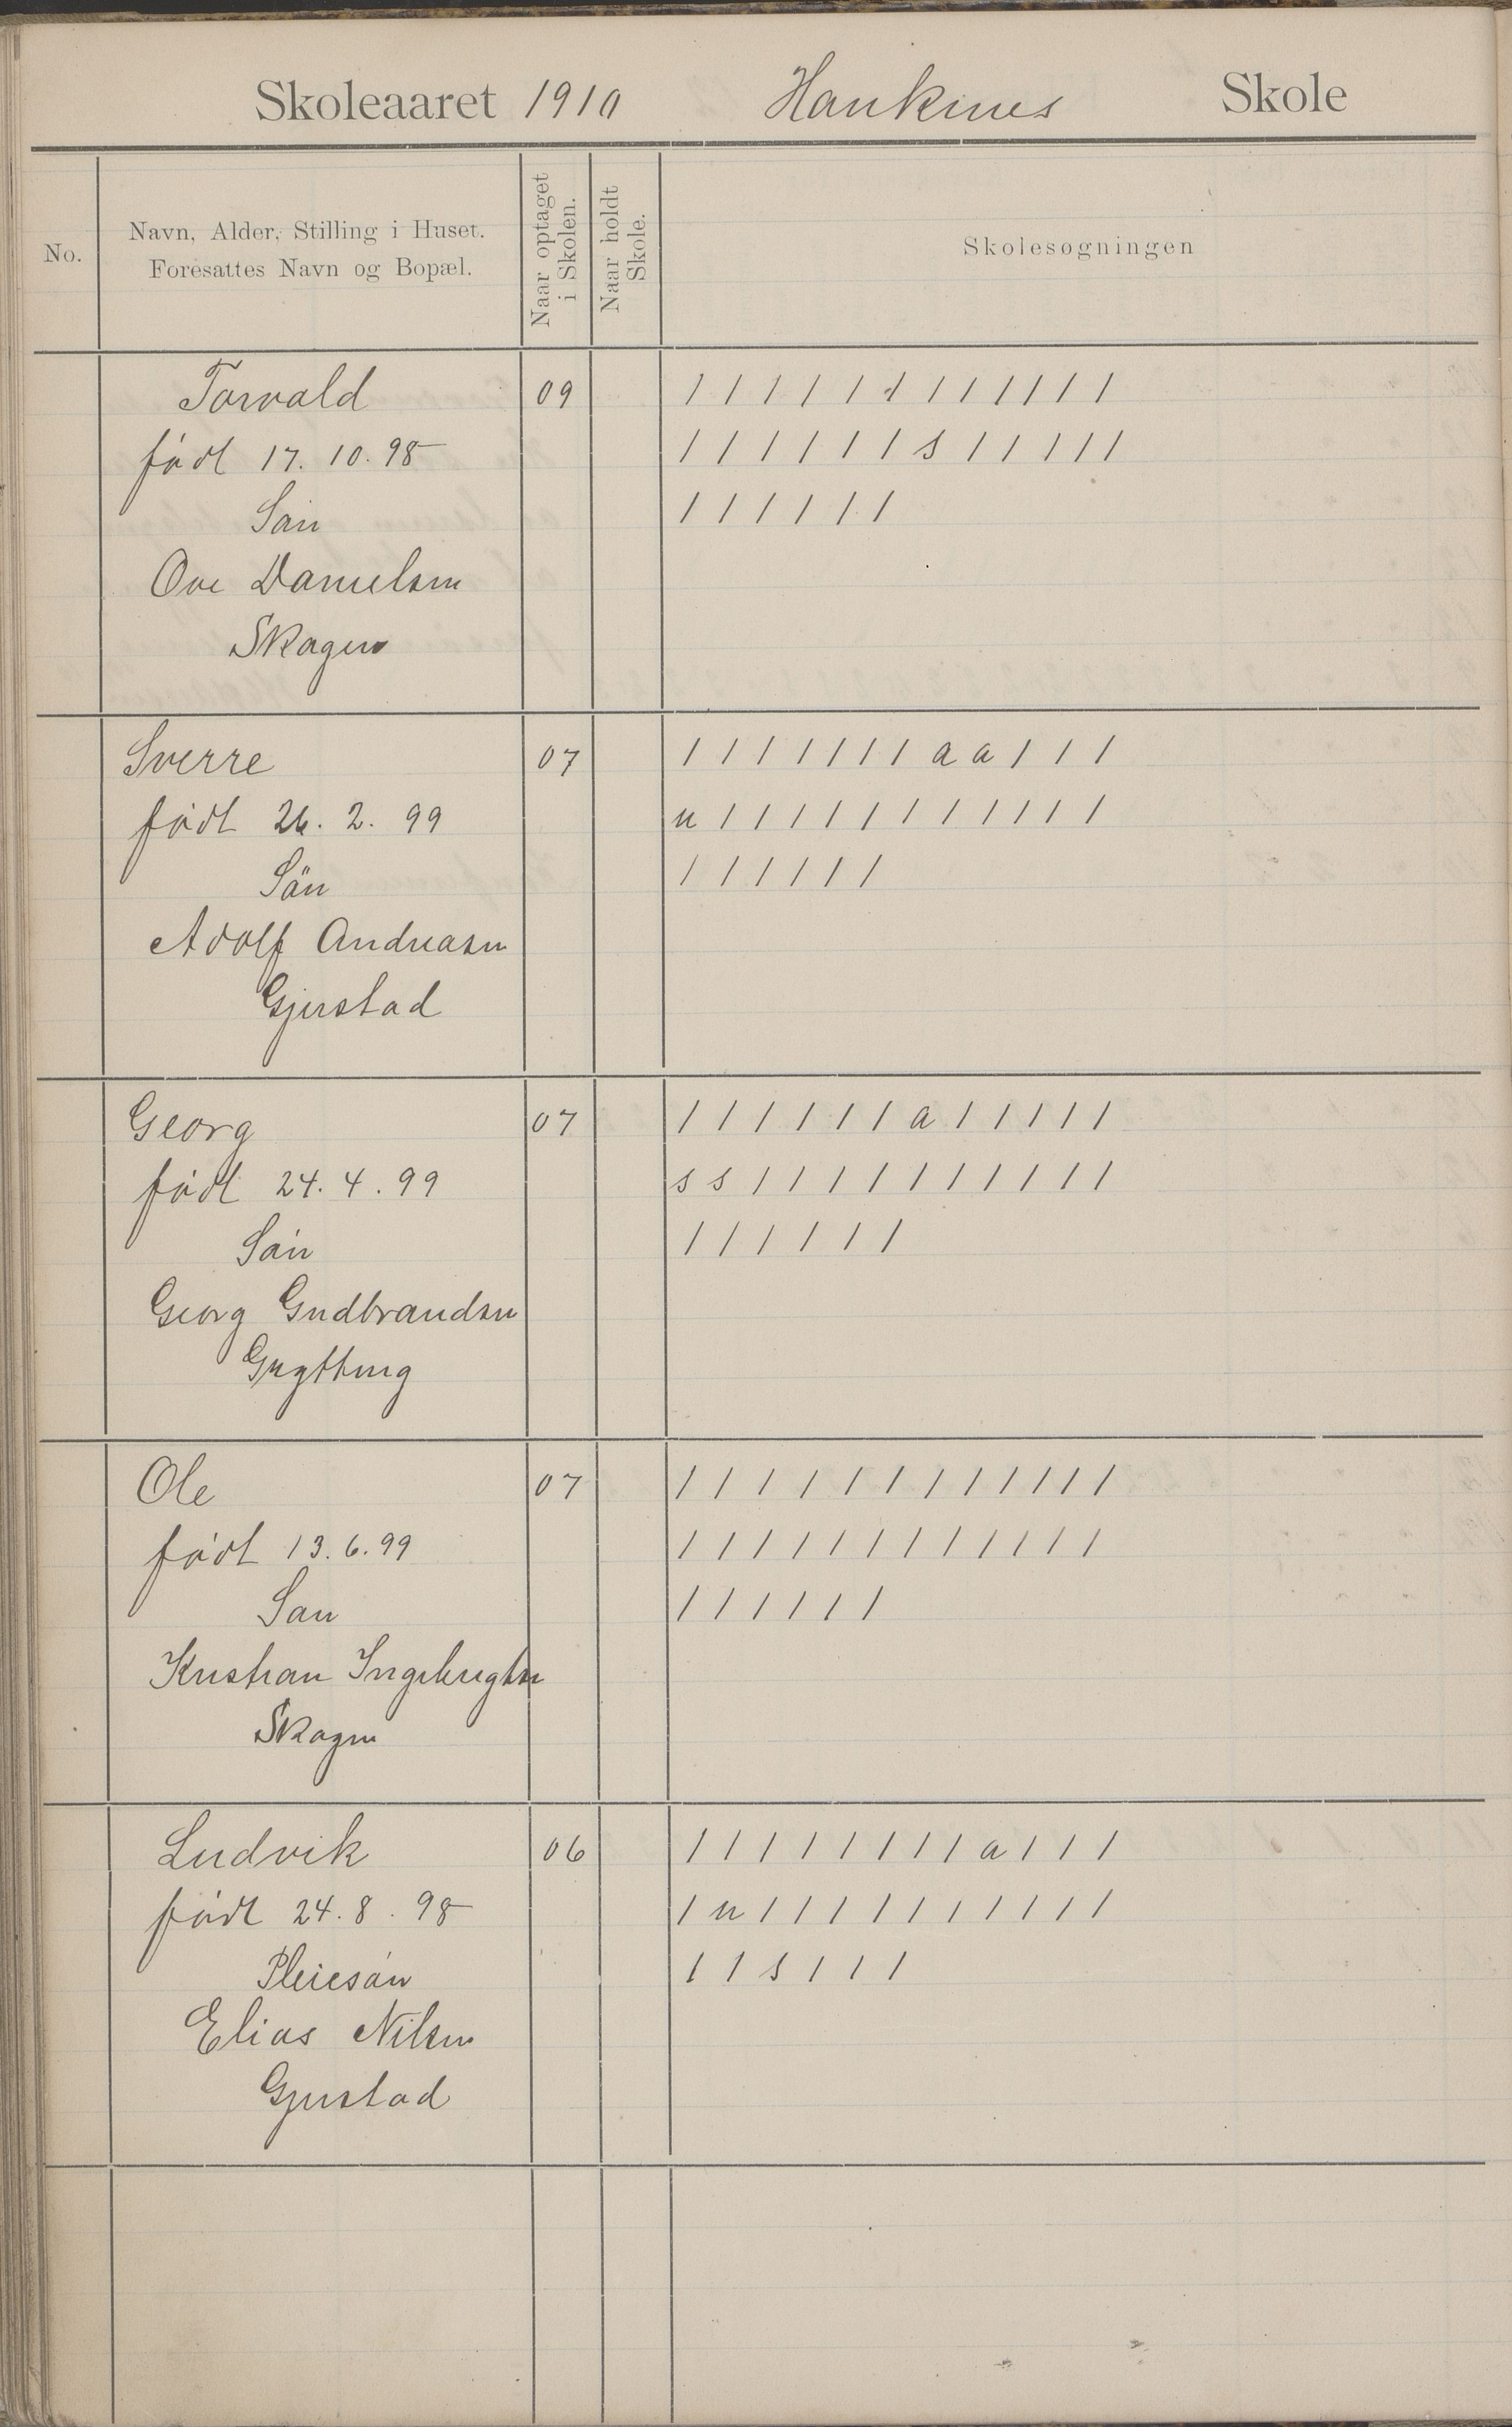 Skoleaaret 1910 Haukenes Skole
No.
Navn, Alder, Stilling i Huset.
Foresattes Navn og Bopæl.
Naar optaget
i Skolen.
Naar holdt
Skole.
Skolesøgningen
Torvald 09 / / / / / / / / / / / /
født 17. 10. 98 / / / / / / s / / / / /
Søn / / / / / /
Ove Danielsen
Skagen
Sverre 07 / / / / / / / a a / / /
født 26. 2. 99 u / / / / / / / / / / /
Søn / / / / / /
Adolf Andreasen
Gjerstad
Georg 07 / / / / / / a / / / / /
født 24. 4. 99 s s / / / / / / / / / /
Søn / / / / / /
Georg Gudbrandsen
Ole 07 / / / / / / / / / / / /
født 13. 6. 99 / / / / / / / / / / / /
Søn / / / / / /
Kristian Ingebrigtsen
Skagen
Ludvik 06 / / / / / / / / a / / /
født 24. 8. 98 / u / / / / / / / / / /
Pleiesøn / / s / / /
Elias Nilsen
Gjerstad